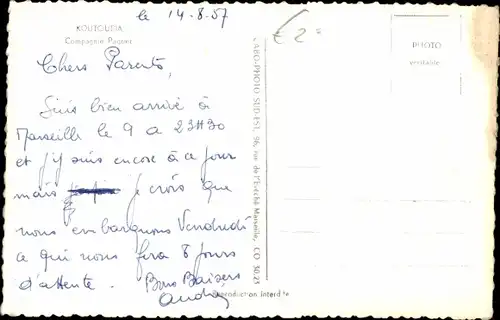 le 14-8-57
KOUTOUBIA
Compagnie Paquet
Chers Parents,
Suis bien arrivé à
Marseille le 9 a 23H30
et j'y suis encore à ce jour
mais je crois que
nous embarquons Vendredi
ce qui nous fera 8 jours
d'attente. Bons Baisers
André
€ 2=
LABO-PHOTO SUD-EST, 96, rue de l'Evêché Marseille, CO 30-23
Reproduction Interdite
PHOTO
véritable